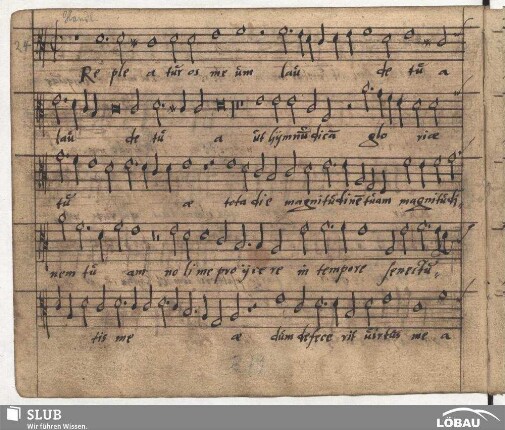 24
Re ple a tur os me um lau de tu a
lau de tu a ut hymnu dica glo riæ
tu æ tota die magnitudine tuam magnitudi,
nem tu am no li me proijce re in tempore senectu,
tis me æ dum defece rit virtus me a
SLUB
Wir führen Wissen.
LÖBAU